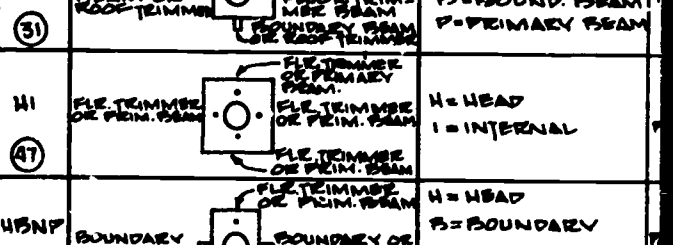 ROOF TRIMMER
MER BEAM
BOUNDARY BEAM
OR ROOF TRIMMER
B=BOUND. BEAM
P=PRIMARY BEAM
31
HI
47
FLR. TRIMMER
OR PRIM. BEAM
FLR. TRIMMER
OR PRIMARY
BEAM.
FLR. TRIMMER
OR PRIM. BEAM
FLR. TRIMMER
OR PRIM. BEAM
H = HEAD
I = INTERNAL
HBNP
BOUNDARY
FLR. TRIMMER
OR PRIM. BEAM
BOUNDARY OR
H = HEAD
B = BOUNDARY